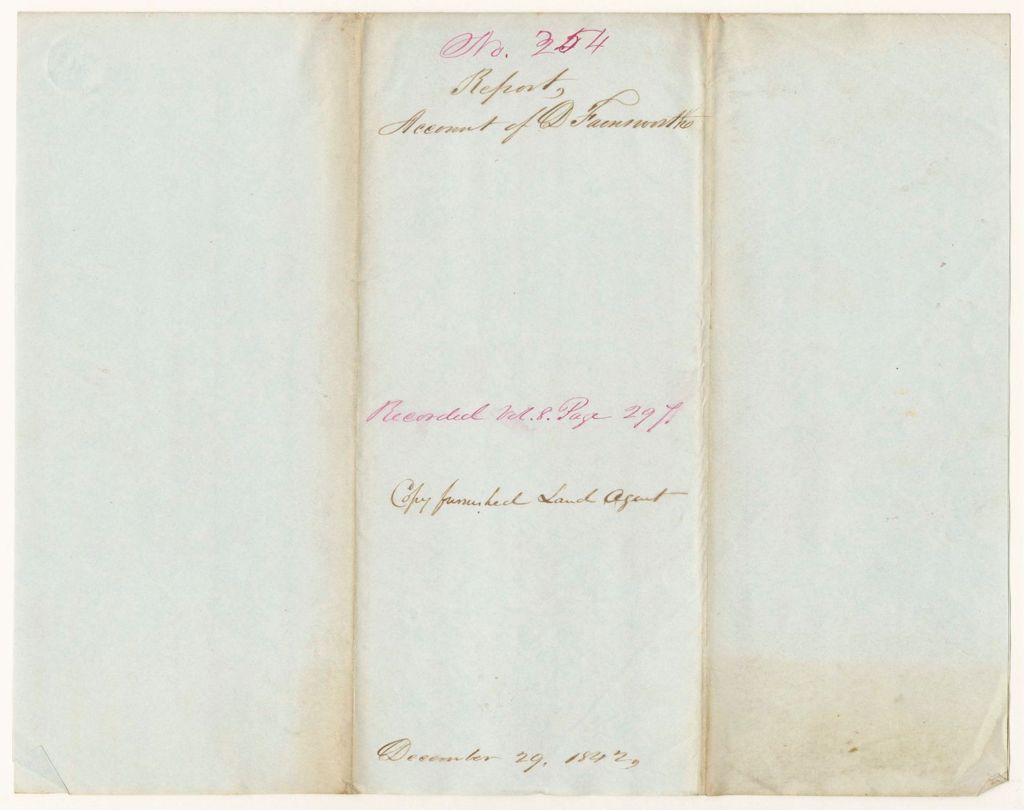 No. 254
Report,
Account of D Farnsworth
Recorded Vol. 8. Page 297.
Copy furnished Land Agent
December 29, 1842,